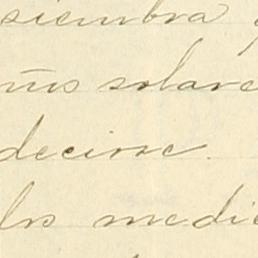 siembra
mũs solare
decirse.
los medie